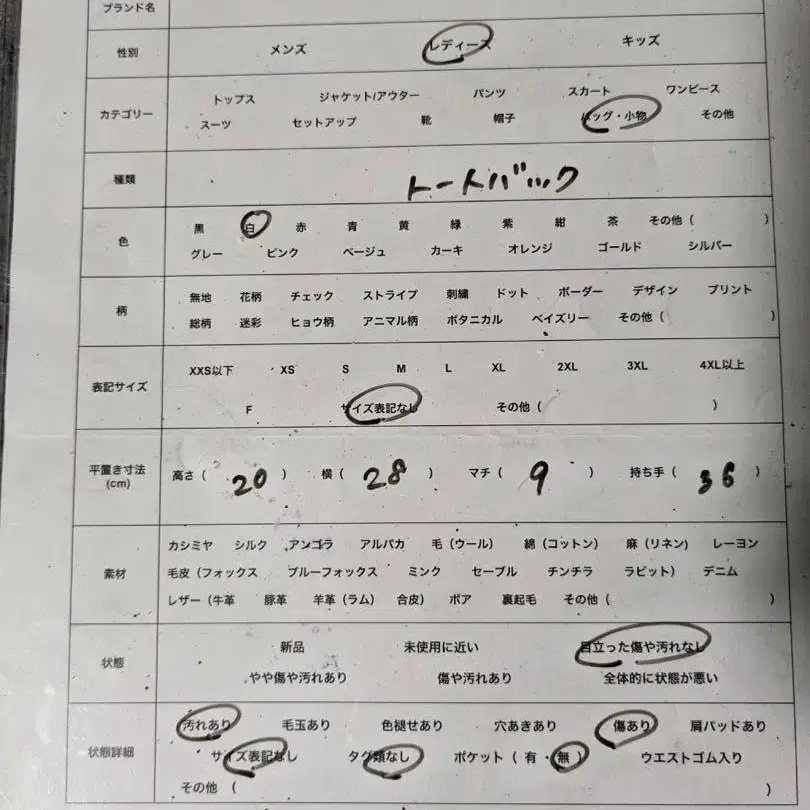 ブランド名
性別 メンズ レディース キッズ
カテゴリー トップス ジャケット/アウター パンツ スカート ワンピース
スーツ セットアップ 靴 帽子 バッグ・小物 その他
種類 トートバック
色 黒 白 赤 青 黄 緑 紫 紺 茶 その他 ( )
グレー ピンク ベージュ カーキ オレンジ ゴールド シルバー
柄 無地 花柄 チェック ストライプ 刺繍 ドット ボーダー デザイン プリント
総柄 迷彩 ヒョウ柄 アニマル柄 ボタニカル ペイズリー その他 ( )
表記サイズ XXS以下 XS S M L XL 2XL 3XL 4XL以上
F サイズ表記なし その他 ( )
平置き寸法 (cm) 高さ ( 20 ) 横 ( 28 ) マチ ( 9 ) 持ち手 ( 36 )
素材 カシミヤ シルク アンゴラ アルパカ 毛 (ウール) 綿 (コットン) 麻 (リネン) レーヨン
毛皮 (フォックス ブルーフォックス ミンク セーブル チンチラ ラビット) デニム
レザー (牛革 豚革 羊革 (ラム) 合皮) ボア 裏起毛 その他 ( )
状態 新品 未使用に近い 目立った傷や汚れなし
やや傷や汚れあり 傷や汚れあり 全体的に状態が悪い
状態詳細 汚れあり 毛玉あり 色褪せあり 穴あきあり 傷あり 肩パッドあり
サイズ表記なし タグ類なし ポケット ( 有 ・ 無 ) ウエストゴム入り
その他 ( )